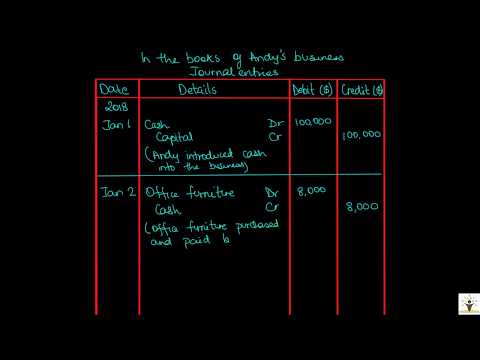 In the books of Andy's business
Journal entries
Date Details Debit ($) Credit ($)
2018
Jan 1 Cash Dr 100,000
Capital Cr 100,000
(Andy introduced cash
into the business)
Jan 2 Office furniture Dr 8,000
Cash Cr 8,000
(Office furniture purchased
and paid b